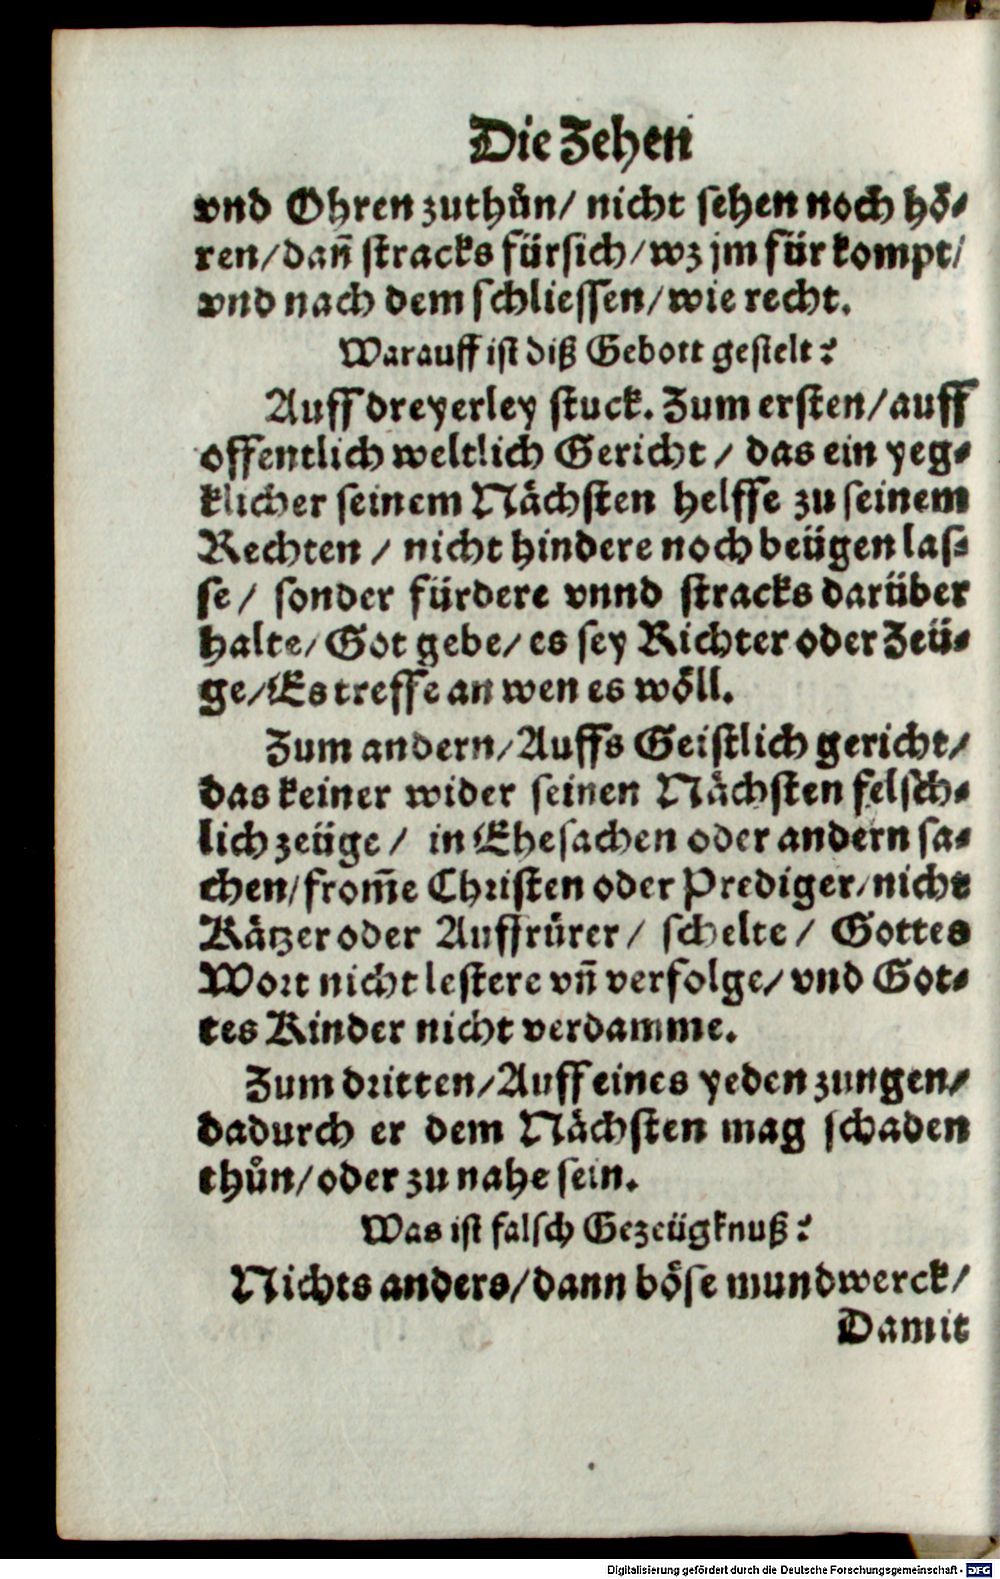 Die Zehen
vnd Ohren zuthůn/ nicht sehen noch hö⸗
ren/dañ stracks fürsich/wz jm für kompt/
vnd nach dem schliessen/wie recht.
Warauff ist diß Gebott gestelt?
Auff dreyerley stuck. Zum ersten/auff
offentlich weltlich Gericht/ das ein yeg⸗
klicher seinem Nächsten helffe zu seinem
Rechten/ nicht hindere noch beügen las⸗
se/ sonder fürdere vnnd stracks darüber
halte/Got gebe/es sey Richter oder Zeü⸗
ge/Es treffe an wen es wöll.
Zum andern/Auffs Geistlich gericht/
das keiner wider seinen Nächsten felsch⸗
lich zeüge/ in Ehesachen oder andern sa⸗
chen/from̄e Christen oder Prediger/nicht
Kätzer oder Auffrürer/ schelte/ Gottes
Wort nicht lestere vñ verfolge/vnd Got⸗
tes Kinder nicht verdamme.
Zum dritten/Auff eines yeden zungen/
dadurch er dem Nächsten mag schaden
thůn/oder zu nahe sein.
Was ist falsch Gezeügknuß?
Nichts anders/dann böse mundwerck/
Damit
Digitalisierung gefördert durch die Deutsche Forschungsgemeinschaft - DFG